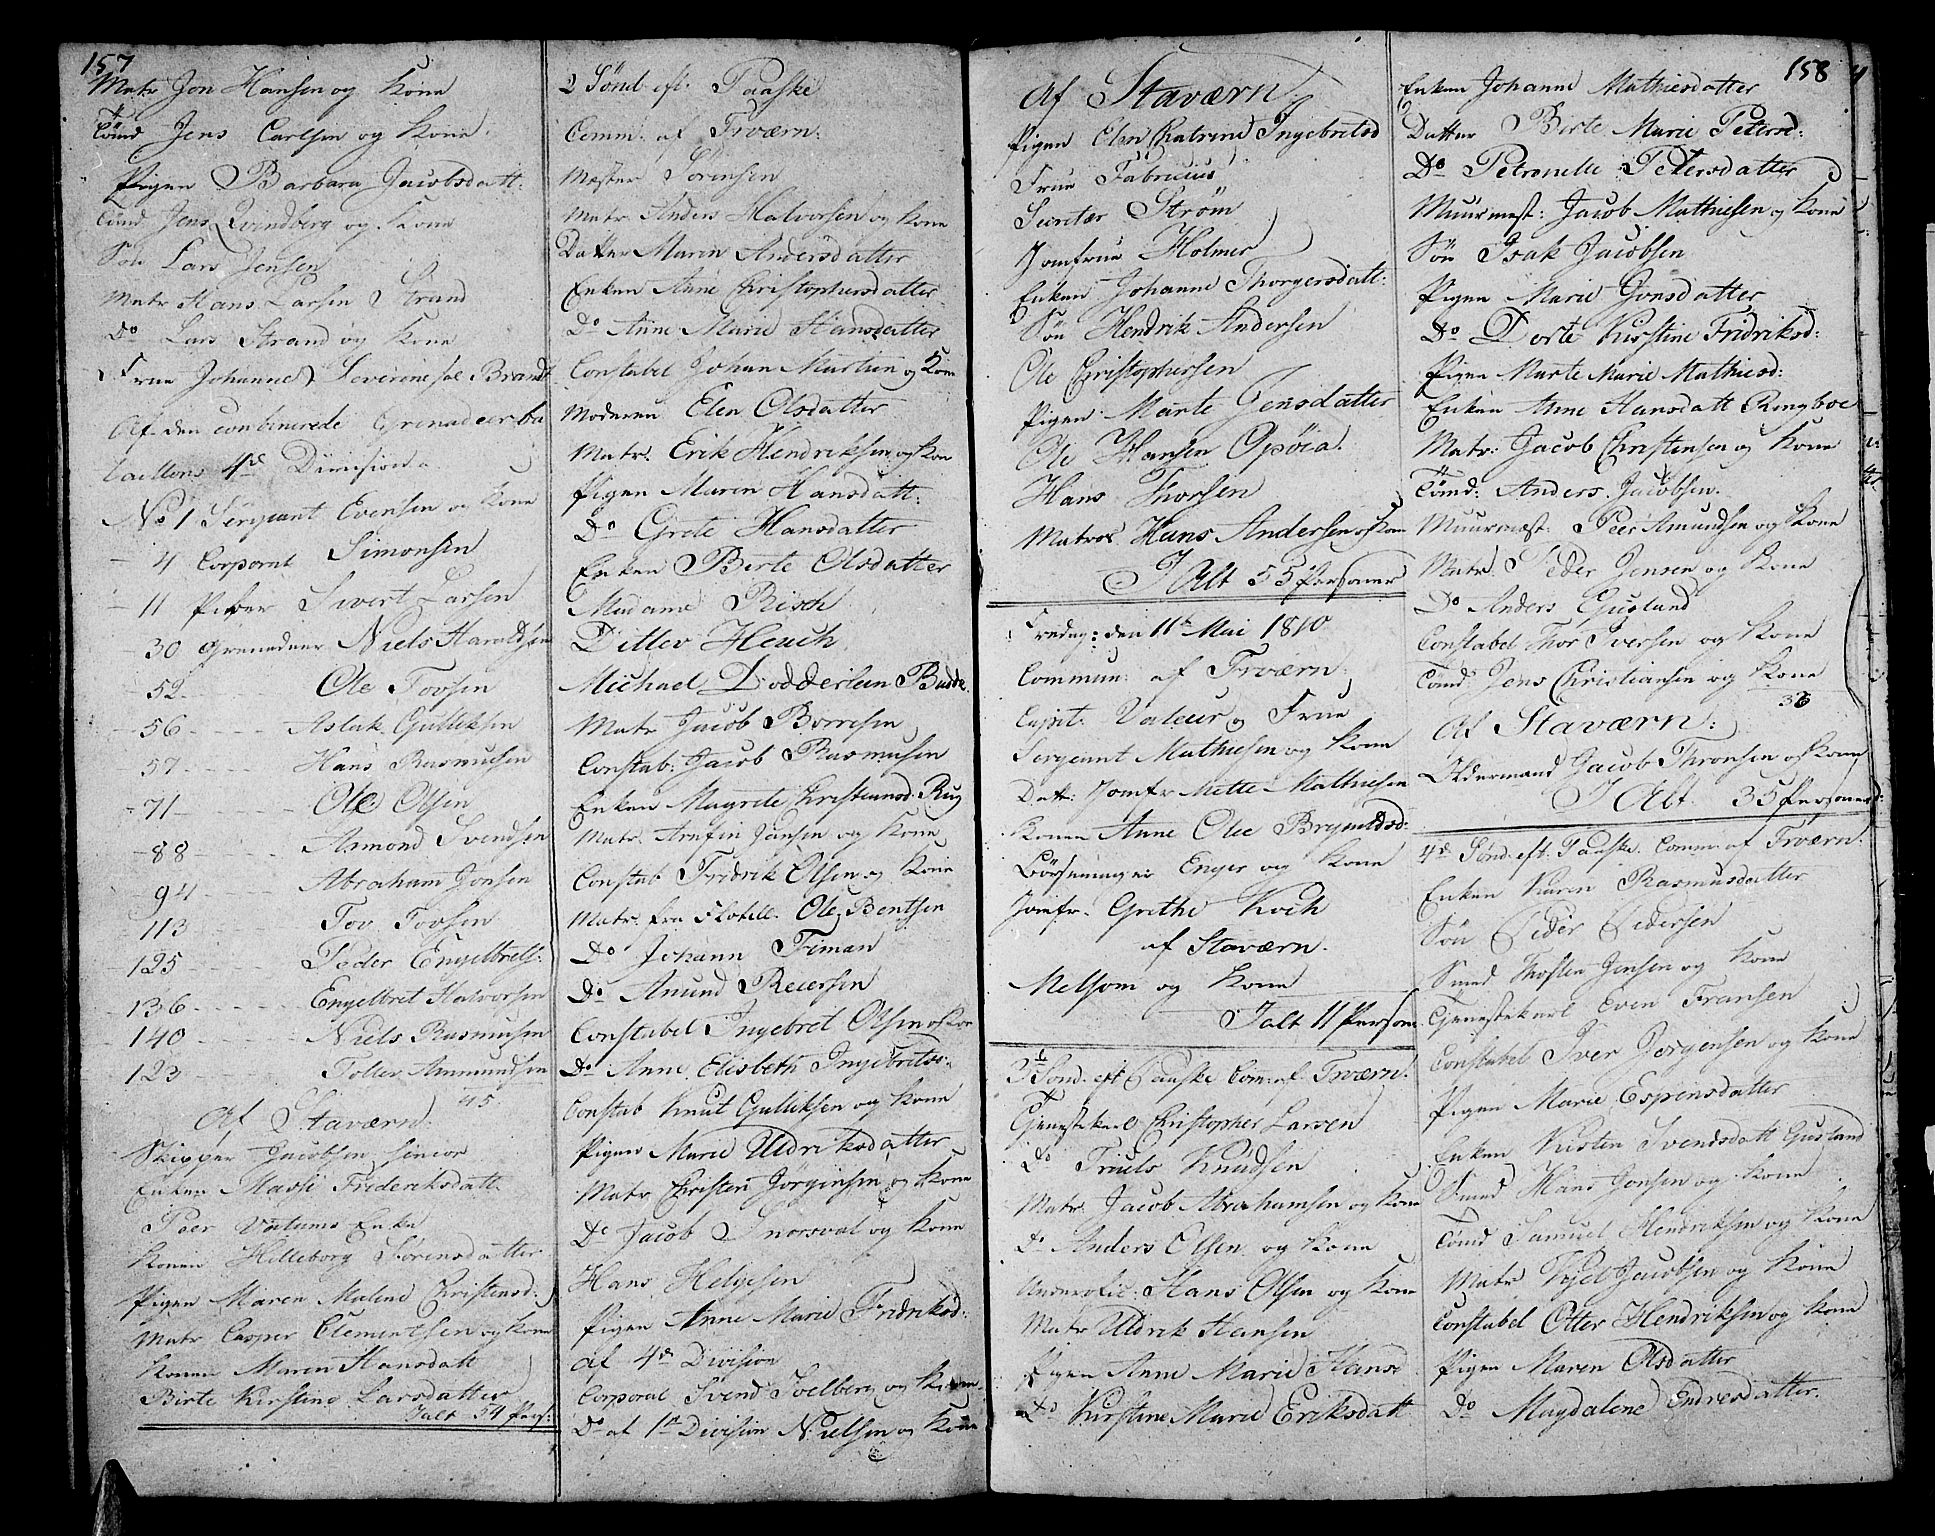 157
Matr Jon Hansen og Kone
Tömd Jens Carlsen og Kone
Pigen Barbara Jacobsdatt:
Tömd Jens Qvindberg og Kone
Sön Lars Jensen
Matr Hans Larsen Strand
Do Lars Strand og Kone
Frue Johanne Severine sal Brandt
Af den combinerede Grenadeer ba
taillons 4de Division
No 1 Sergeant Evensen og Kone
4 Corporal Simonsen
11 Piber Sivert Larsen
30 Grenadeer Niels Haraldsen
52 Ole Tovsen
56 Aslak Gulliksen
57 Hans Rasmusen
71 Ole Olsen
88 Asmond Svendsen
94 Abraham Jonsen
113 Tov Tovsen
125 Peder Engelbrets:
136 Engelbret Halvorsen
140 Niels Rasmusen
123 Toller Ammundsen
45
Af Staværn:
Skipper Jacobsen senior
Enken Massi Frederiksdatt
Peer Vatums Enke
Konen Hilleborg Sörensdatter
Pigen Maren Malene Christensd:
Matr Casper Clementsen og Kone
Konen Maren Hansdatt
Birte Kirstine Larsdatter
Ialt 54 Pers:
2 Sönd eft: Paaske
Comm: af Frværn:
Mester Sörensen
Matr Anders Halvorsen og Kone
Datter Maren Andersdatter
Enken Anne Christophersdatter
Do Anne Marie Hansdatter
Constabel Johan Martin og Kone
Moderen Elen Olsdatter
Matr: Erik Hendriksen og Kone
Pigen Maren Hansdatt:
Do Grete Hansdatter
Enken Berte Olsdatter
Madame Risch
Ditlev Heuch
Michael Dodderlein Budde
Matr Jacob Börresen
Constab: Jacob Rasmusen
Enken Magrete Christiansd: Rug
Matr. Arnfin Jansen og Kone
Constab Fridrik Olsen og Kone
Matr: fra Flotill. Ole Bentsen
Do Johann Timan
Do Amund Reiersen
Constabel Ingebret Olsen og Kone
Do Anne Elisbeth Ingebritsd:
Constab Knut Gulliksen og Kone
Pigen Marie Uldriksdatter
Matr Christen Jörgensen og Kone
Do Jacob Snorsval og Kone
Hans Helgesen
Pigen Anne Marie Fridriksd:
af 4de Division
Corporal Svend Solberg og Kone
Do af 1ste Division Nielsen og Kone
Af Staværn.
Pigen Elen Chatrine Ingebritsd
Frue Fabricius
Secretær Ström
Jomfrue Holmer
Enken Johanne Thorgersdatt:
Sön Hendrik Andersen
Ole Christophersen
Pigen Marte Jensdatter
Ole Hansen Opöia.
Hans Thorsen
Matros Hans Andersen og Kone
I Alt 55 Personer
Fredag: den 11te Mai 1810
Commun: af Frværn:
Capit: Valeur og Frue
Sergeant Mathiesen og Kone
Datt: Jomfr Mette Mathiesen
Konen Anne Olee Bryneldsd:
Enger og Kone
Jomfr. Grethe Koch
af Staværn.
Melsom og Kone
Ialt 11 Persone
3de Sönd. eft Paaske Com: af Frværn:
Tjenestekarl Christopher Larsen
Do Truels Knudsen
Matr: Jacob Abrahamsen og Kone
Do Anders Olsen og Kone
Underofic: Hans Olsen og Kone
Matr Uldrik Hansen
Pigen Anne Marie Hansd
Do Kirstine Marie Eriksdatt
158
Enken Johanne Mathiesdatter
Datter Birte Marie Petersd:
Do Petronelle Petersdatter
Muurmest: Jacob Mathiesen og Kone
Sön Isak Jacobsen
Pigen Marie Jonsdatter
Do Dorte Kirstine Fridriksd:
Pigen Marte Marie Mathiesd:
Enken Anne Hansdatt Ringboe
Matr: Jacob Christensen og Kone
Tömd: Anders Jacobsen.
Muurmest: Peer Amundsen og Kone
Matr. Peder Jensen og Kone
Do Anders Gusland
Constabel Thor Iversen og Kone
Tömd Jens Christiansen og Kone
36
Af Staværn:
Oldermand Jacob Thronsen og Kone
I Alt 35 Personer:
4de Sönd. eft. Paaske. Comm: af Frværn.
Enken Karen Rasmusdatter
Sön Peder Pedersen
Smed Thosten Jensen og Kone
Tjenestekarl Even Fransen
Constabel Iver Jörgensen og Kone
Pigen Marie Espensdatter
Enken Kirsten Svendsdatt Gusland
Smed Hans Jonsen og Kone
Tömd Samuel Hendriksen og Kone
Matr Kjel Jacobsen og Kone
Constabel Otter Hendriksen og Kone
Pigen Maren Olsdatter
Do Magdalene Endresdatter.